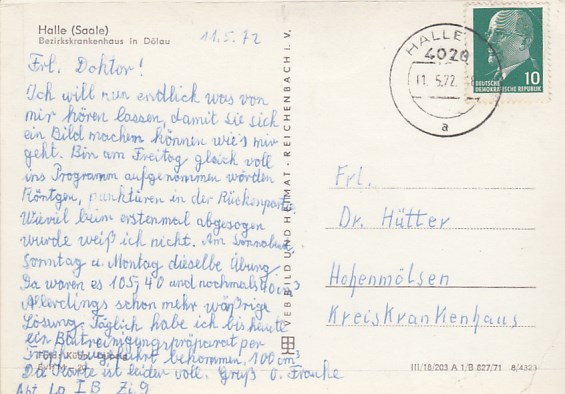 Halle (Saale)
Bezirkskrankenhaus in Dölau
11.5.72
Frl. Doktor!
Ich will nun endlich was von
mir hören lassen, damit sie sich
ein Bild machen können wie's mir
geht. Bin am Freitag gleich voll
ins Programm aufgenommen worden
Röntgen, punktüren in der Rückenpartie
Wieviel beim erstenmal abgesogen
wurde weiß ich nicht. Am Sonnabend
Sonntag u. Montag dieselbe Übung
Da waren es 105, 40 und nochmals 40 cm³
Allerdings schon mehr wäßrige
Lösung. Täglich habe ich bis heute
ein Blutreinigungspräparat per
bekommen. 100 cm³
Die Karte ist leider voll. Gruß
Abt. I B Zi 9
VEB BILD UND HEIMAT · REICHENBACH I. V.
HALLE
4020
11.5.72
a
DEUTSCHE
DEMOKRATISCHE REPUBLIK
10
Frl.
Dr. Hütter
Hohenmölsen
Kreiskrankenhaus
III/18/203 A 1/B 827/71 8/4323